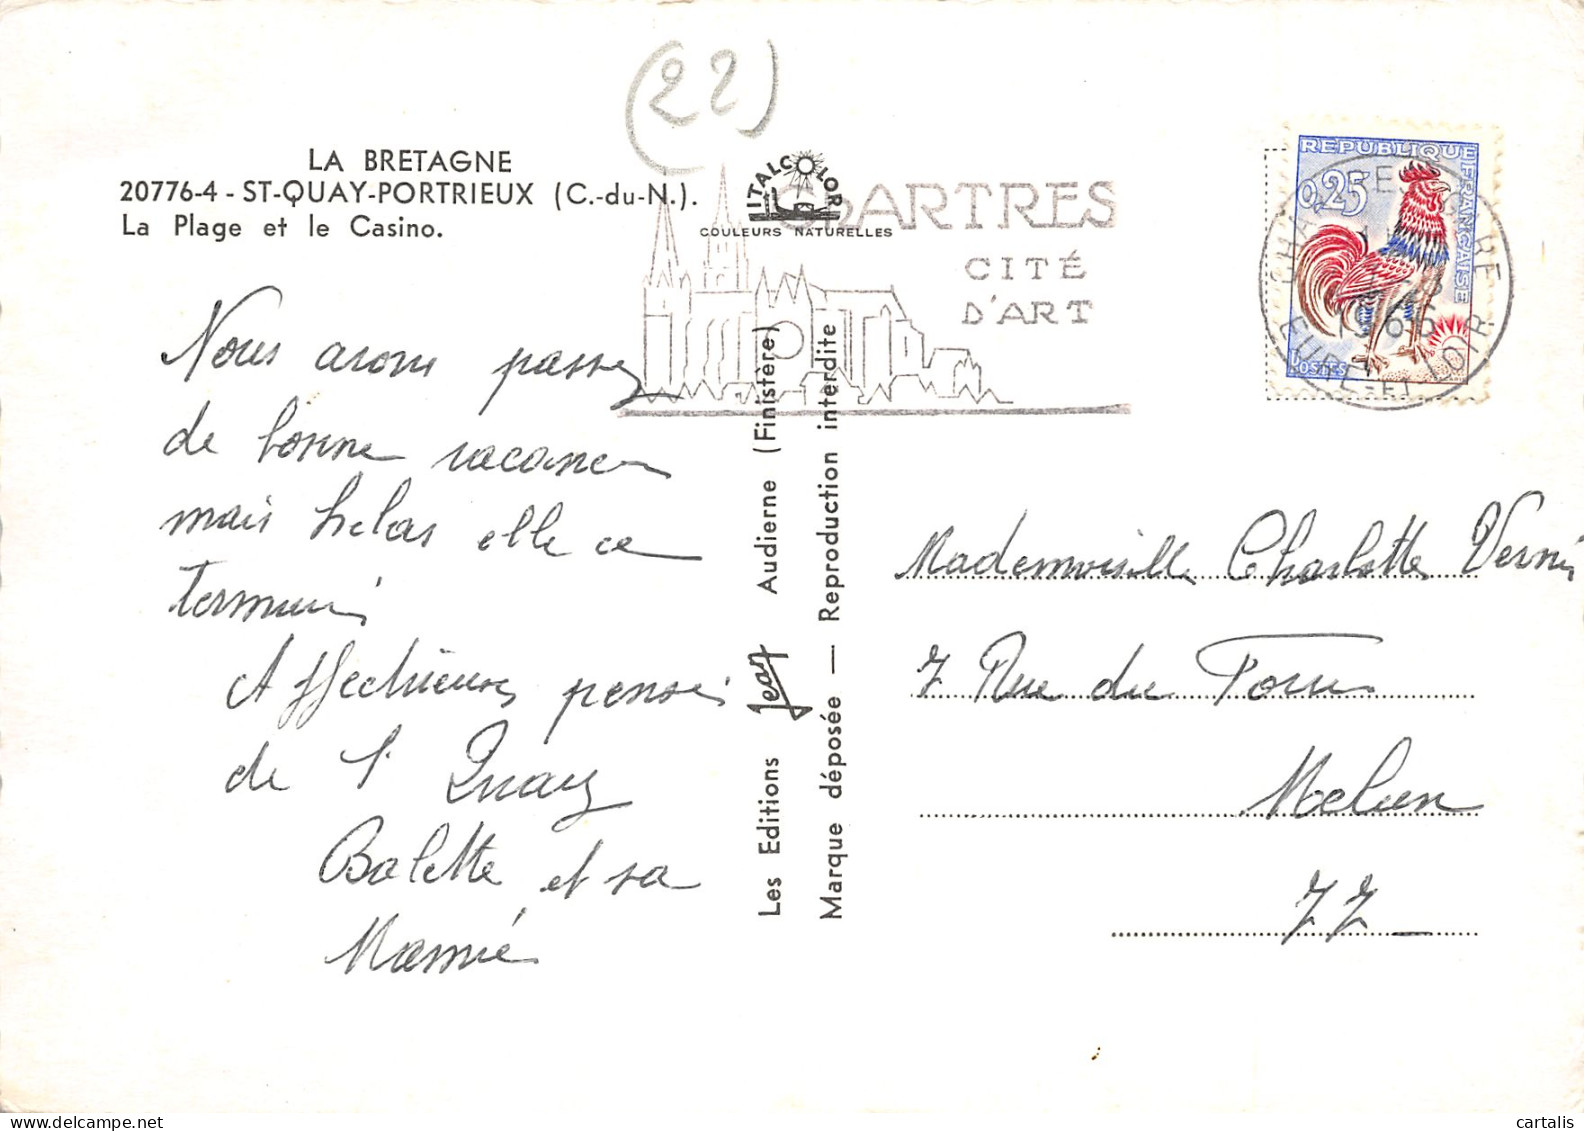 (22)
LA BRETAGNE
20776-4 - ST-QUAY-PORTRIEUX (C.-du-N.).
La Plage et le Casino.
ITALCOLOR
COULEURS NATURELLES
CHARTRES
CITÉ
D'ART
REPUBLIQUE FRANÇAISE
0,25
POSTES
CHARTRES GARE
1966
EURE-ET-LOIR
Nous avons passer
de bonne vacances
mais helas elle ce
termine
Affectueuses pensé
de St Quay
Balette et sa
Mamie
Les Editions Jean Audierne (Finistère)
Marque déposée — Reproduction interdite
Mademoiselle Charlotte
7 Rue du Four
Melun
77
cartalis